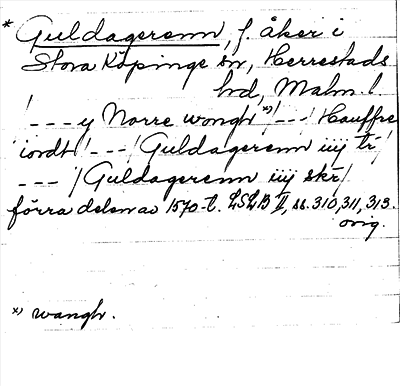 * Guldagerenn, f. åker i
Stora Köpinge sn, Herrestads
hd, Malm. l.
/ --- y Norre wongh *) / --- / Hauffre
iordt / --- / Guldagerenn iiij tr /
--- / Guldagerenn iiij skr /
förra delen av 1570-t. LSLB II, ss. 310, 311, 313.
orig.
*) wangh.